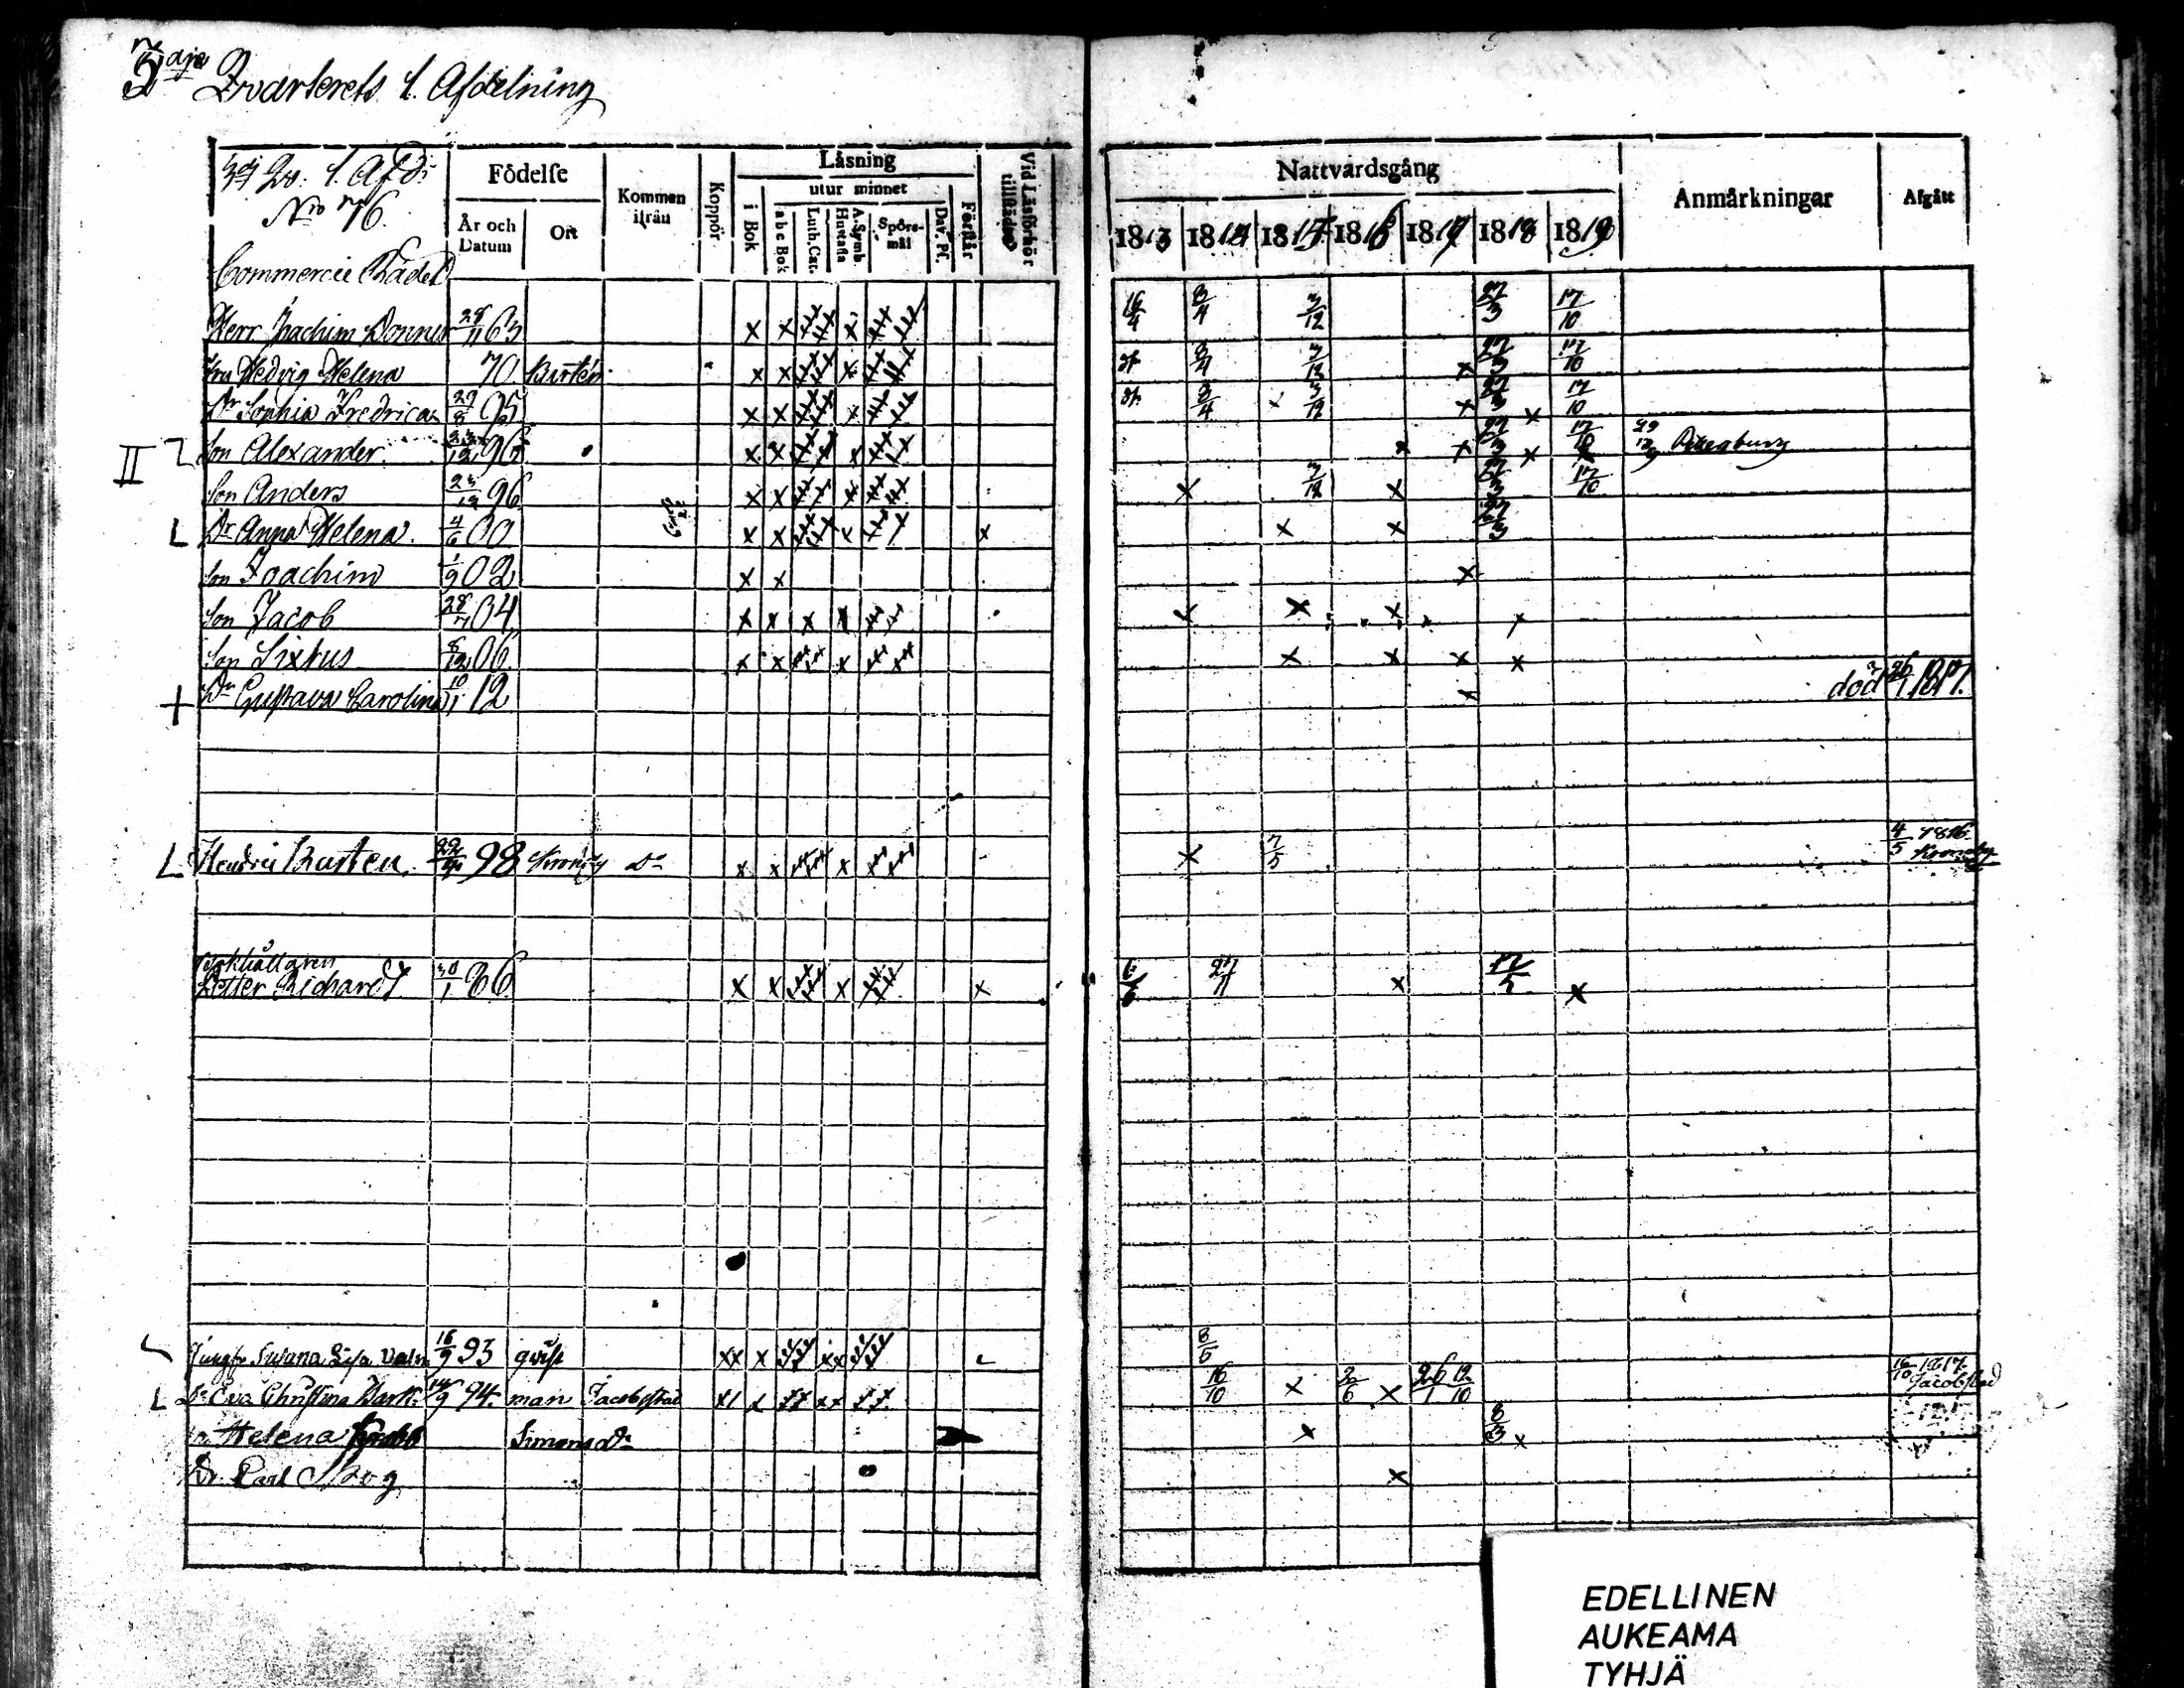 3dje Qvarterets 1. Afdelning
3dj Qv. 1. Afd:
No 76.
Födelse
År och Datum
Ort
Kommen ifrån
Koppör
Läsning
i Bok
utur minnet
a b c Bok
Luth. Cat.
A. Symb. Hustafla
Spörsmål
Dav. Ps.
Förstår
Vid Läsförhör tillstädes
Nattvardsgång
1813 1814 1815 1816 1817 1818 1819
Anmärkningar
Afgått
Commercie Rådet
Herr Joachim Donner 28/11 63 16/4 3/4 3/12 27/3 17/10
Fru Hedvig Helena 70 Burtén 3/4 3/12 27/3 17/10
Dr Sophia Fredrica 29/8 95 3/4 3/12 27/3 17/10
II Son Alexander 96 27/3 17/10 Petersburg
Son Anders 23/12 96 3/12 27/3 17/10
Dr Anna Helena 4/6 00 27/3
Son Joachim 1/9 02
Son Jacob 28/7 04
Son Sixtus 8/12 06
Dr Gustava Carolina 10/1 12 död 26/1 1817.
Hendric Burten 98 Kronoby Do 7/5 4/5 1816 Kronoby
Bokhållaren
Petter Richardt 30/1 86 17/5
Jungfr Susana Lisa 16/9 93 qvist 8/5
Do Eva Christina 94. man Jacobstad 16/10 2/6 26/1 12/10 16/10 1817 Jacobstad
Helena Simons Dr 8/3
Dr. Carl Skog
EDELLINEN
AUKEAMA
TYHJÄ